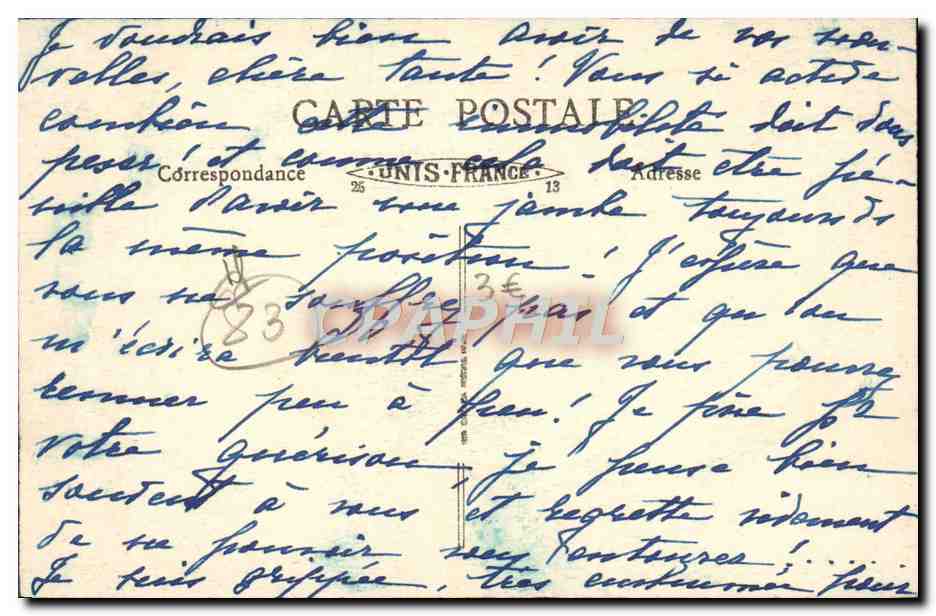 Je voudrais bien avoir de vos nou-
velles, chère tante! Vous si active
combien cette immobilité doit vous
CARTE POSTALE
peser! et comme cela doit être pé-
Correspondance UNIS-FRANCE Adresse
25 13
nible d'avoir une jambe toujours ds
la même position! J'espère que
3€
vous ne souffrez pas et qu'on
83
CPAPHIL
m'écrira bientôt que vous pouvez
remuer peu à peu! Je prie pr
votre guérison, je pense bien
souvent à vous et regrette vivement
de ne pouvoir vous entourer!....
Je suis grippée, très enrhumée pour